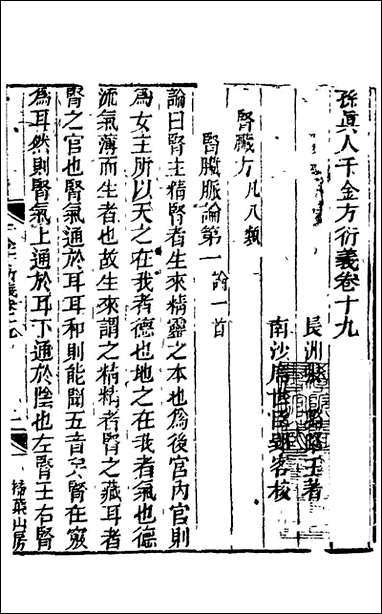 孫眞人千金方衍義卷十九
長洲 張璐路玉著
南沙席世臣鄰客校
腎臟方凡八類
腎臟脈論第一論一首
論曰腎主精腎者生來精靈之本也爲後宮內官則
爲女主所以天之在我者德也地之在我者氣也德
流氣薄而生者也故生來謂之精精者腎之藏耳者
腎之官也腎氣通於耳耳和則能聞五音矣腎在竅
爲耳然則腎氣上通於耳下通於陰也左腎壬右腎
掃葉山房